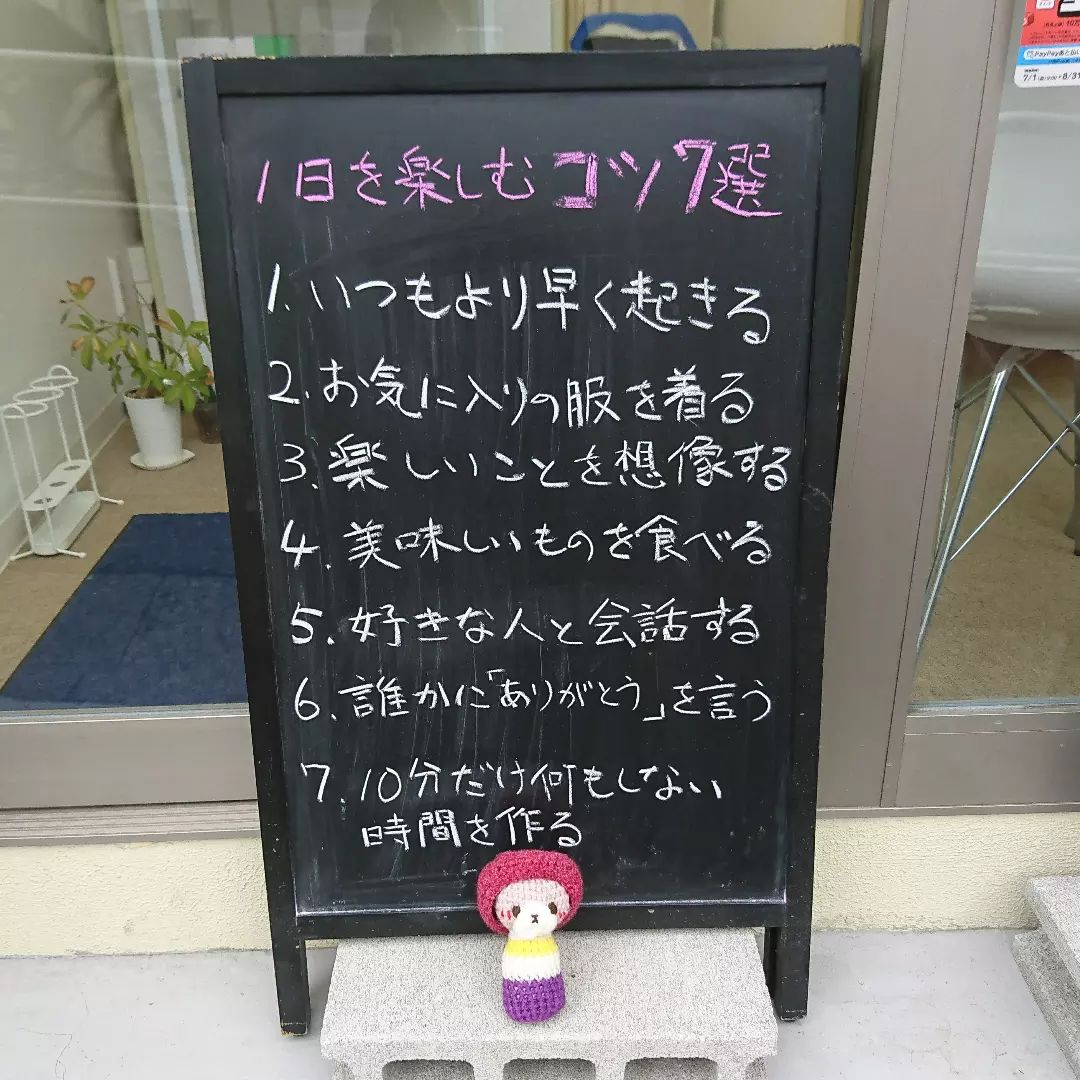 1日を楽しむコツ7選
1.いつもより早く起きる
2.お気に入りの服を着る
3.楽しいことを想像する
4.美味しいものを食べる
5.好きな人と会話する
6.誰かに「ありがとう」を言う
7.10分だけ何もしない
時間を作る
PayPayあと払い